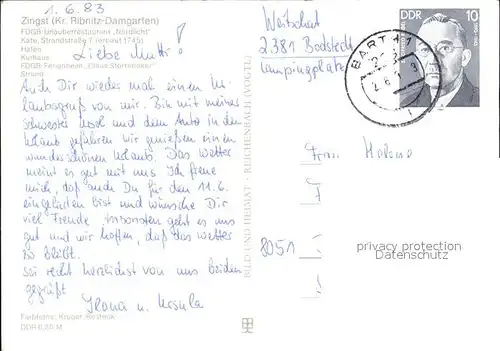 1.6.83
Zingst (Kr. Ribnitz-Damgarten)
FDGB-Urlauberrestaurant „Nordlicht"
Kate, Strandstraße
Hafen
Kurhaus
FDGB-Ferienheim
Strand
Liebe Mutti!
Auch Dir wieder mal einen
laubsgruß von mir. Bin mit meiner
Schwester und dem Auto in den
Urlaub gefahren. Wir genießen einen
wunderschönen Urlaub. Das Wetter
meint es gut mit uns. Ich freue
mich, daß auch Du für den 11.6.
eingeladen bist und wünsche Dir
viel Freude. Ansonsten geht es uns
gut und wir hoffen, daß das Wetter
so bleibt.
Sei recht herzlichst von uns beiden
gegrüßt
Ilona u. Ursula
Farbfotos: Krüger
DDR 0,80 M
BILD UND HEIMAT · REICHENBACH (VOGTL)
2381 Bodstedt
Campingplatz
BARTH 1
DDR 10
Frau
8051
privacy protection
Datenschutz